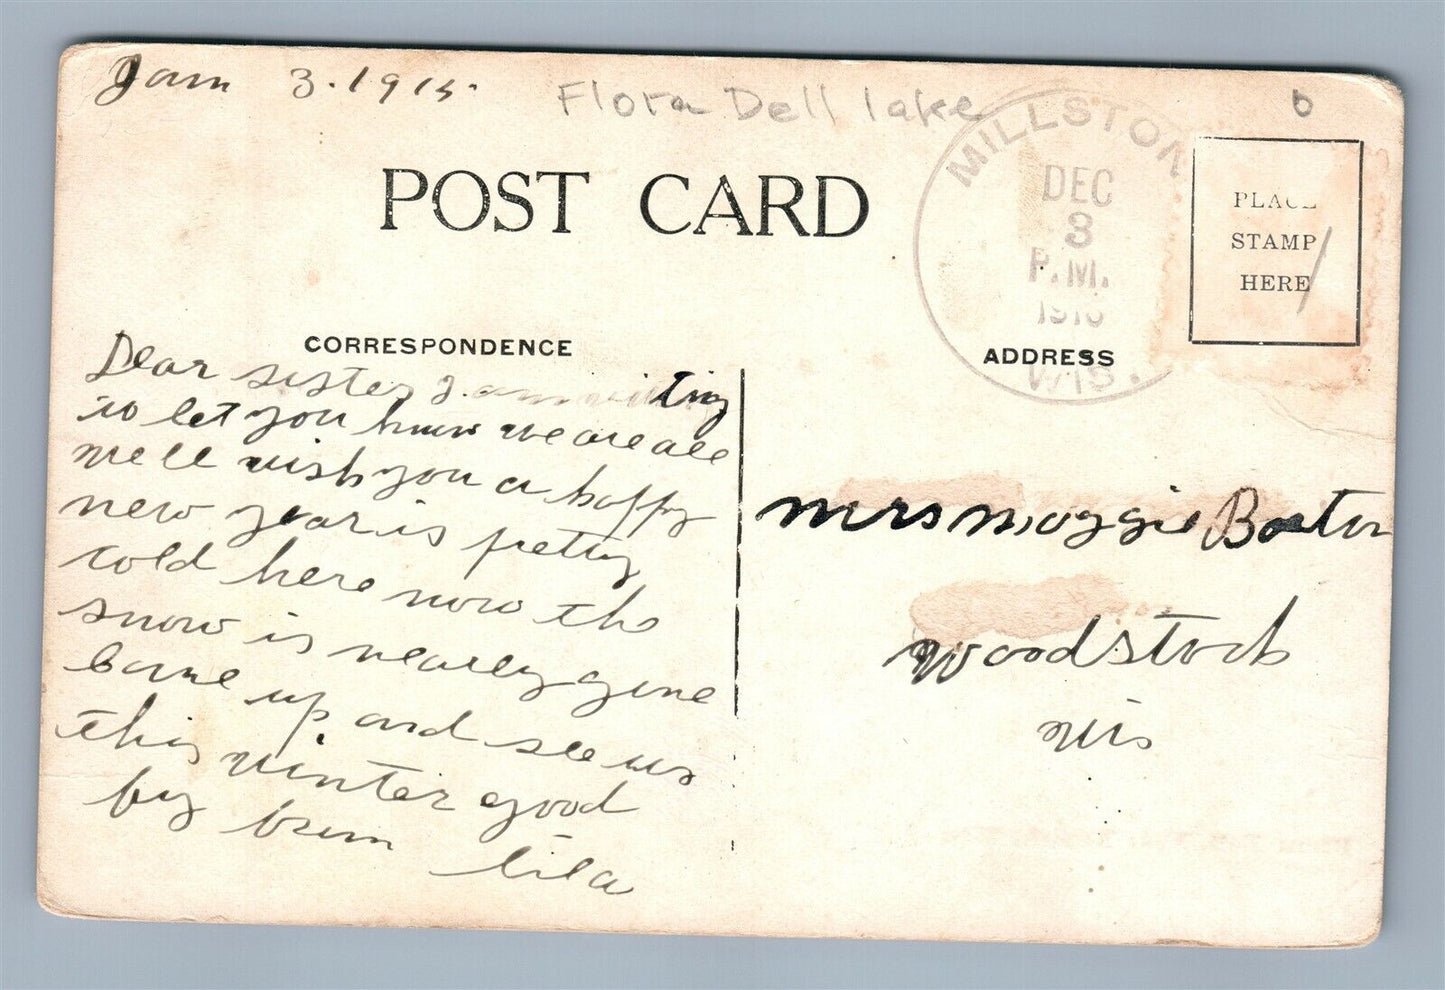 Jan 3. 1915.
Flora Dell lake
MILLSTON
DEC
3
P.M.
WIS.
POST CARD
PLACE
STAMP
HERE
CORRESPONDENCE
ADDRESS
Dear sister I am writing
to let you know we are all
well wish you a happy
new year is pretty
cold here now the
snow is nearly gone
come up and see us
this winter good
by from Lila
mrs maggie
woodstock
wis